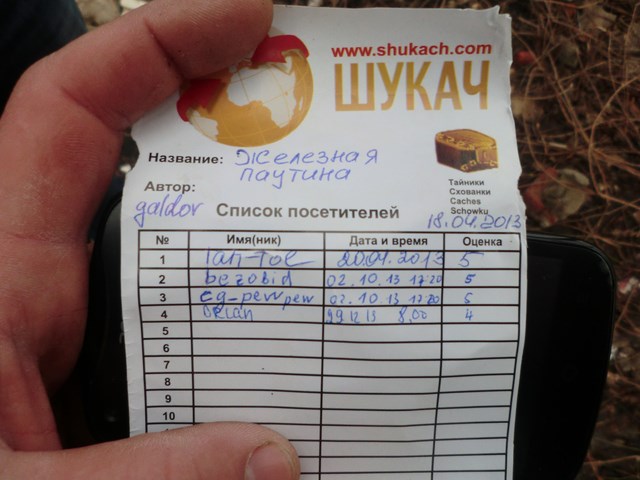 www.shukach.com
ШУКАЧ
Название: Железная
паутина
Тайники
Схованки
Caches
Schowku
Автор:
galdor Список посетителей 18.04.2013
№ Имя(ник) Дата и время Оценка
1 Ian-Tol 20.04.2013 5
2 bezobid 02.10.13 17:20 5
3 eg-pew pew 02.10.13 17:20 5
4 29 12 13 8,00 4
5
6
7
8
9
10